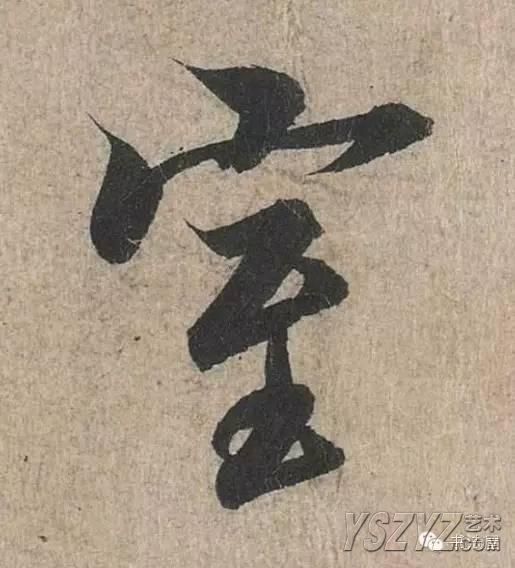 室
YSZYZ艺术
书法屋